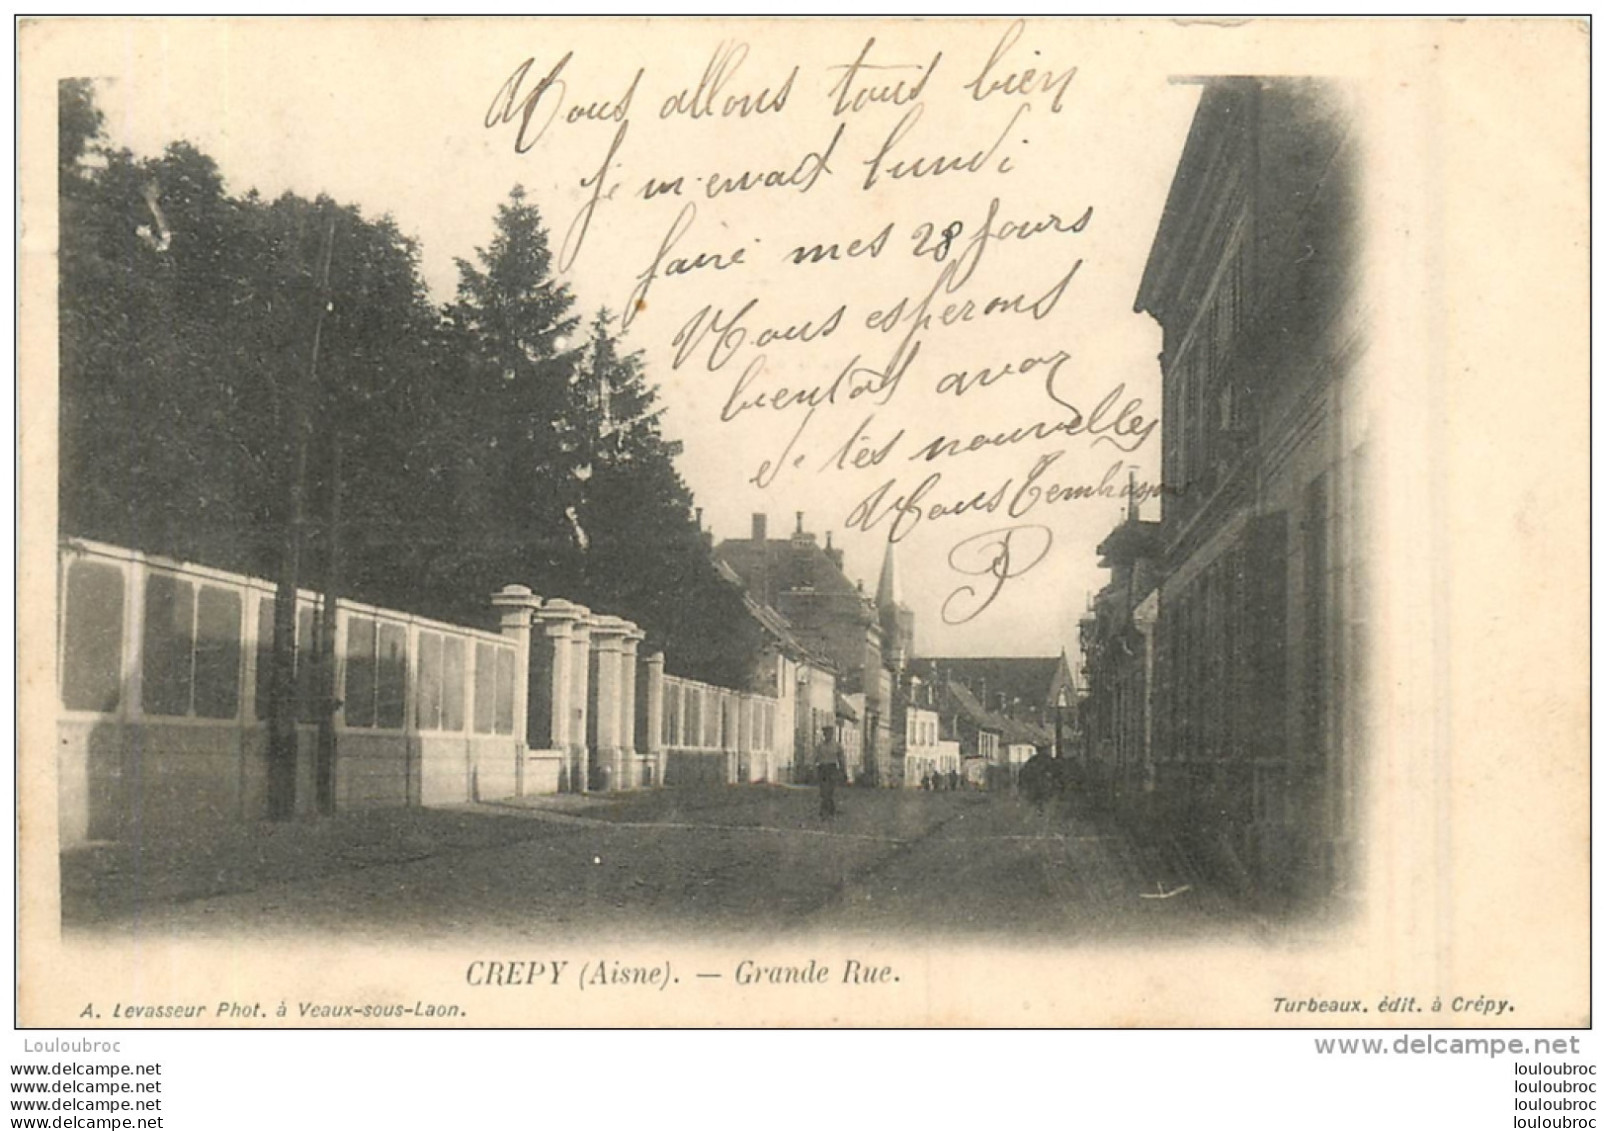 Nous allons tous bien
Je m'en vais lundi
faire mes 28 jours
Nous esperons
bientôt avoir
de tes nouvelles
Nous t'embrassons
CREPY (Aisne). — Grande Rue.
A. Levasseur Phot. à Veaux-sous-Laon.
Turbeaux. édit. à Crépy.
Louloubroc
www.delcampe.net
www.delcampe.net
www.delcampe.net
www.delcampe.net
www.delcampe.net
louloubroc
louloubroc
louloubroc
louloubroc